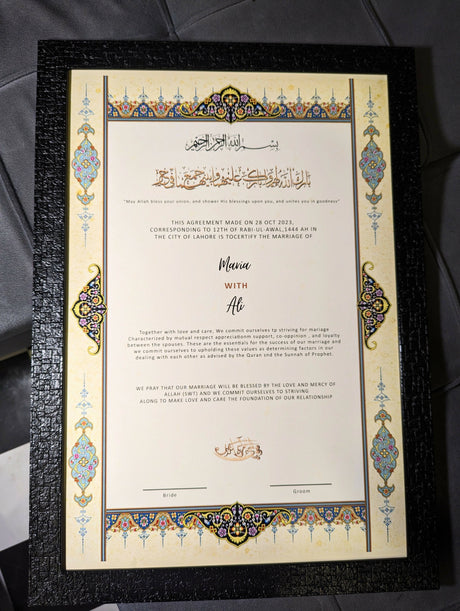 بسم الله الرحمن الرحيم
"May Allah bless your union, and shower His blessings upon you, and unites you in goodness"
THIS AGREEMENT MADE ON 28 OCT 2023,
CORRESPONDING TO 12TH OF RABI-UL-AWAL,1444 AH IN
THE CITY OF LAHORE IS TOCERTIFY THE MARRIAGE OF
Maria
WITH
Ali
Together with love and care, We commit ourselves tp striving for mariage
Characterized by mutual respect appreciationm support, co-oppinion , and loyalty
between the spouses. These are the essentials for the success of our marriage and
we commit ourselves to upholding these values as determining factors in our
dealing with each other as advised by the Quran snd the Sunnah of Prophet.
WE PRAY THAT OUR MARRIAGE WILL BE BLESSED BY THE LOVE AND MERCY OF
ALLAH (SWT) AND WE COMMIT OURSELVES TO STRIVING
ALONG TO MAKE LOVE AND CARE THE FOUNDATION OF OUR RELATIONSHIP
Bride
Groom